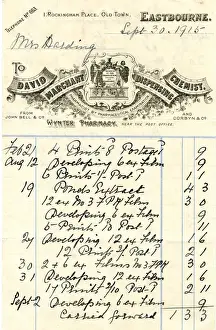 TELEPHONE Nº 663
1, ROCKINGHAM PLACE, OLD TOWN, EASTBOURNE.
Sept 30. 1915
Mrs Harding
TO
DAVID MARCHANT DISPENSING CHEMIST,
FROM JOHN BELL & Co
AND CORBYN & Co
WYNTER PHARMACY, NEAR THE POST OFFICE.
Feb 21 4 Prints 8 Postage 9
Aug 12 Developing 6 ex Film 9
6 Prints 1/- Post 1 1 1
19 Ponds Extract 4 3
12 ex No 3 F.P.K Film 3 0
Developing 6 ex Film 9
5 Prints 10 Post 1 11
24 Developing 12 ex Film 1 3
12 Prints Post 1 2 1
30 2 + 6 ex Films 3 0
31 Developing 12 ex Film 1 3
17 Prints 2/10 Post 1 2 11
Sept 2 Developing 6 ex Film 9
Carried forward 1 3 3